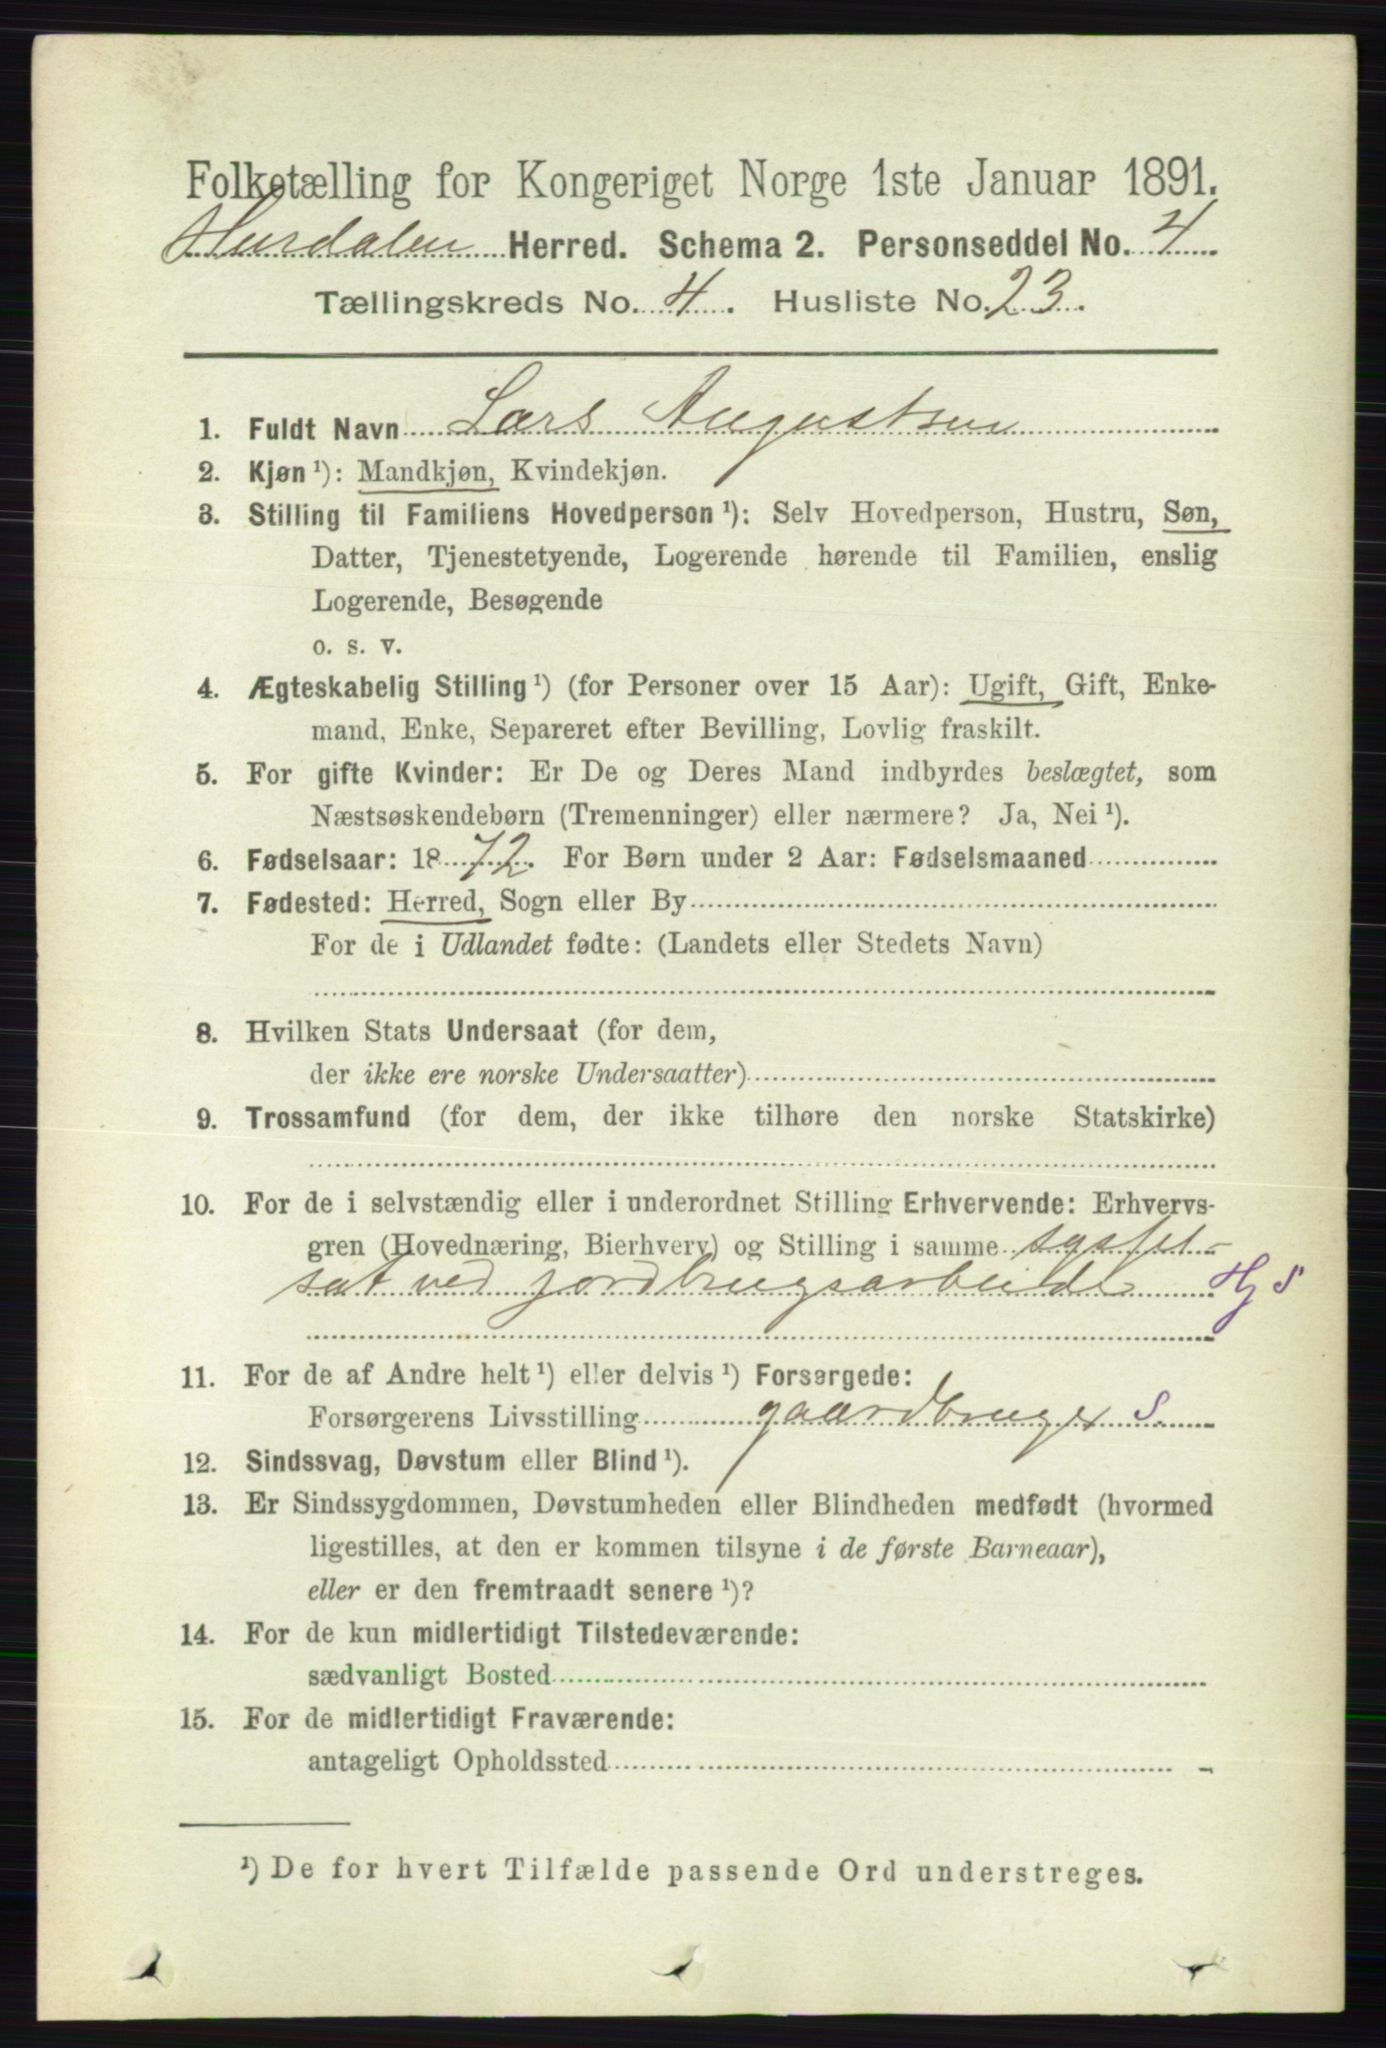 Folketælling for Kongeriget Norge 1ste Januar 1891.
Hurdalen Herred. Schema 2. Personseddel No. 4
Tællingskreds No. 4. Husliste No. 23.
1. Fuldt Navn Lars Augustsen
2. Kjøn ¹): Mandkjøn, Kvindekjøn.
3. Stilling til Familiens Hovedperson ¹): Selv Hovedperson, Hustru, Søn,
Datter, Tjenestetyende, Logerende hørende til Familien, enslig
Logerende, Besøgende
o. s. v.
4. Ægteskabelig Stilling ¹) (for Personer over 15 Aar): Ugift, Gift, Enke-
mand, Enke, Separeret efter Bevilling, Lovlig fraskilt.
5. For gifte Kvinder: Er De og Deres Mand indbyrdes beslægtet, som
Næstsøskendebørn (Tremenninger) eller nærmere? Ja, Nei ¹).
6. Fødselsaar: 1872. For Børn under 2 Aar: Fødselsmaaned
7. Fødested: Herred, Sogn eller By
For de i Udlandet fødte: (Landets eller Stedets Navn)
8. Hvilken Stats Undersaat (for dem,
der ikke ere norske Undersaatter)
9. Trossamfund (for dem, der ikke tilhøre den norske Statskirke)
10. For de i selvstændig eller i underordnet Stilling Erhvervende: Erhvervs-
gren (Hovednæring, Bierhverv) og Stilling i samme syssel-
sat ved jordbrugsarbeide Hj S
11. For de af Andre helt ¹) eller delvis ¹) Forsørgede:
Forsørgerens Livsstilling gaardbruger S.
12. Sindssvag, Døvstum eller Blind ¹).
13. Er Sindssygdommen, Døvstumheden eller Blindheden medfødt (hvormed
ligestilles, at den er kommen tilsyne i de første Barneaar),
eller er den fremtraadt senere ¹)?
14. For de kun midlertidigt Tilstedeværende:
sædvanligt Bosted
15. For de midlertidigt Fraværende:
antageligt Opholdssted
¹) De for hvert Tilfælde passende Ord understreges.